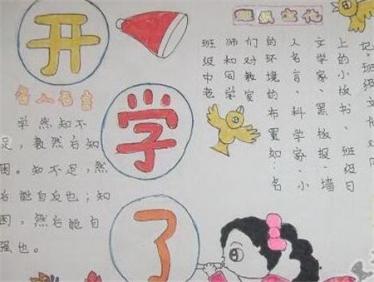 开
学
了
班级文化
名人名言
学然知不
足，教然后知
困。知不足，然
后能自反也；知
困，然后能自
强也。
班级中老
师和同学
们对教室
的环境的布置如：名
人名言、科学家、
文学家、黑板报墙
上的小板书、班级日
记、